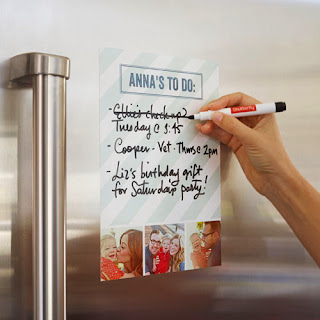 ANNA'S TO DO:
- Ellie's check-up
Tuesday @ 3:45
- Cooper - Vet - Thurs @ 2pm
- Liz's birthday gift
for Saturday's party!